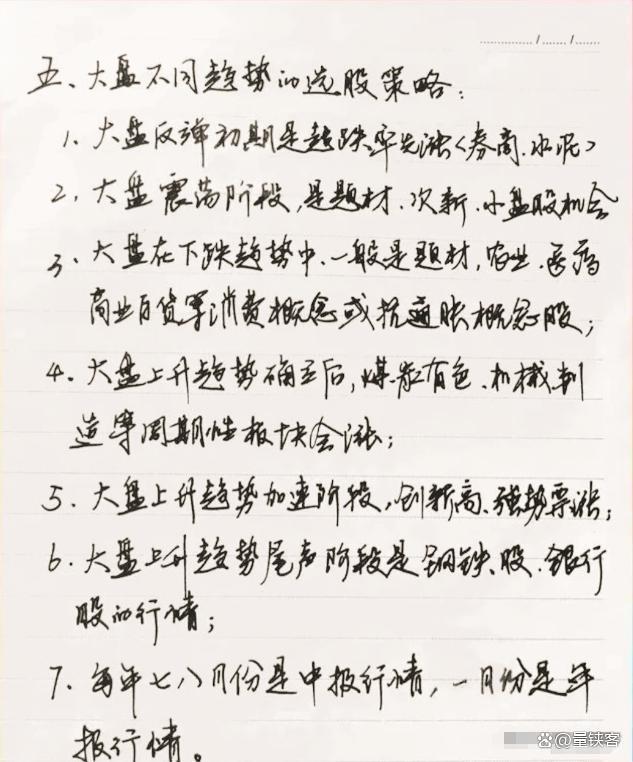 五、大盘不同趋势的选股策略:
1、大盘反弹初期是超跌率先涨(券商、水泥)
2、大盘震荡阶段,是题材、次新、小盘股机会
3、大盘在下跌趋势中、一般是题材,农业、医药
商业百货等消费概念或抗通胀概念股;
4、大盘上升趋势确立后,煤炭有色、机械制
造等周期性板块会涨;
5、大盘上升趋势加速阶段,创新高、强势票涨;
6、大盘上升趋势尾声阶段是钢铁股、银行
股的行情;
7、每年七八月份是中报行情,一月份是年
报行情。
量铁客